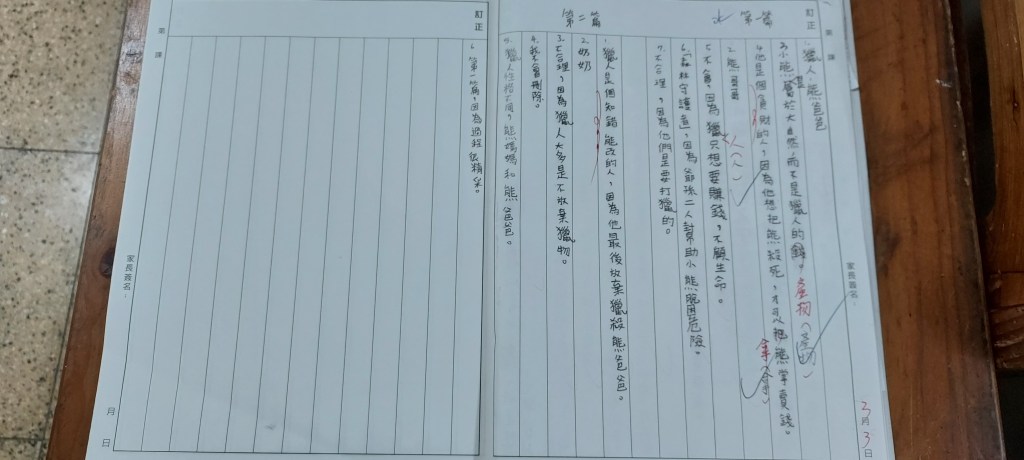 訂正
第一篇
1. 獵人、熊爸爸
3. 小熊是屬於大自然,而不是獵人的錢。產物(產物)
4. 他是個貪財的人,因為他想把熊殺死,才可以把熊掌賣錢。
拿(拿)
2. 熊寶寶
5. 不會,因為獵只想要賺錢,不顧生命。
人(人)
6. 「森林守護者」,因為爺孫二人幫助小熊脫困危險。
7. 不合理,因為他們是要打獵的。
第二篇
1. 獵人是個知錯能改的人,因為他最後放棄獵殺熊爸爸。
2. 奶奶
3. 不合理,因為獵人大多是不放棄獵物。
4. 我不會刪除。
5. 獵人性格不同,熊媽媽和熊爸爸。
家長簽名:
3月3日
訂正
第 課
6. 第一篇,因為過程很精采。
家長簽名:
月 日